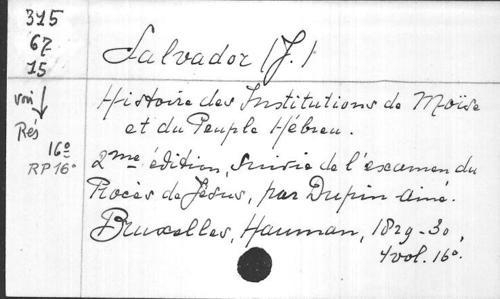 315
67
15
voir
Rés
16º
RP 16º
Salvador (J.)
Histoire des Institutions de Moïse
et du Peuple Hébreu.
2me édition, suivie de l'examen du
Procès de Jésus, par Dupin aîné.
Bruxelles, Hauman, 1829-30,
4 vol. 16º.